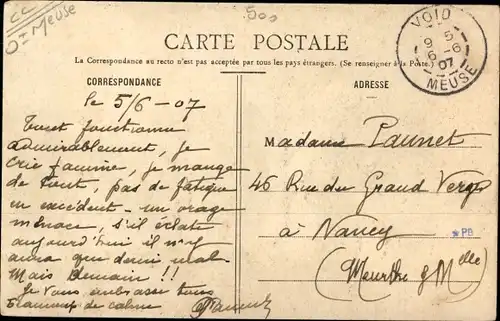 CC
Dt Meuse
500
VOID
9 5
6 -6
07
MEUSE
CARTE POSTALE
La Correspondance au recto n'est pas acceptée par tous les pays étrangers. (Se renseigner à la Poste.)
CORRESPONDANCE
le 5/6-07
Tout fonctionne
admirablement, je
crie famine, je mange
de tout, pas de fatigue
un accident - un orage
menace, s'il éclate
aujourd'hui il n'y
aura que demi mal
Mais Demain !!
Je vous embrasse tous
Beaucoup de calme
ADRESSE
Madame Paunet
46 Rue du Grand Verger
à Nancy
*PB
(Meurthe & Mlle)